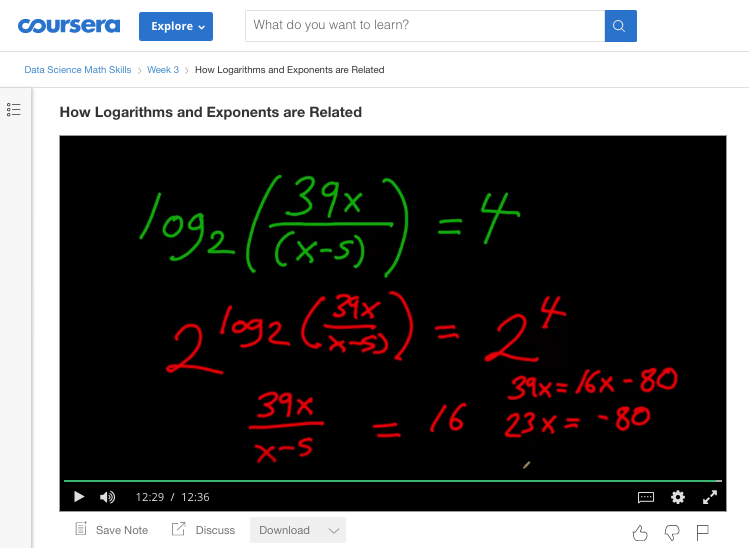 coursera
Explore
What do you want to learn?
Data Science Math Skills > Week 3 > How Logarithms and Exponents are Related
How Logarithms and Exponents are Related
log₂(39x/(x-5)) = 4
2^log₂(39x/(x-5)) = 2^4
39x/(x-5) = 16
39x = 16x - 80
23x = -80
12:29 / 12:36
Save Note
Discuss
Download